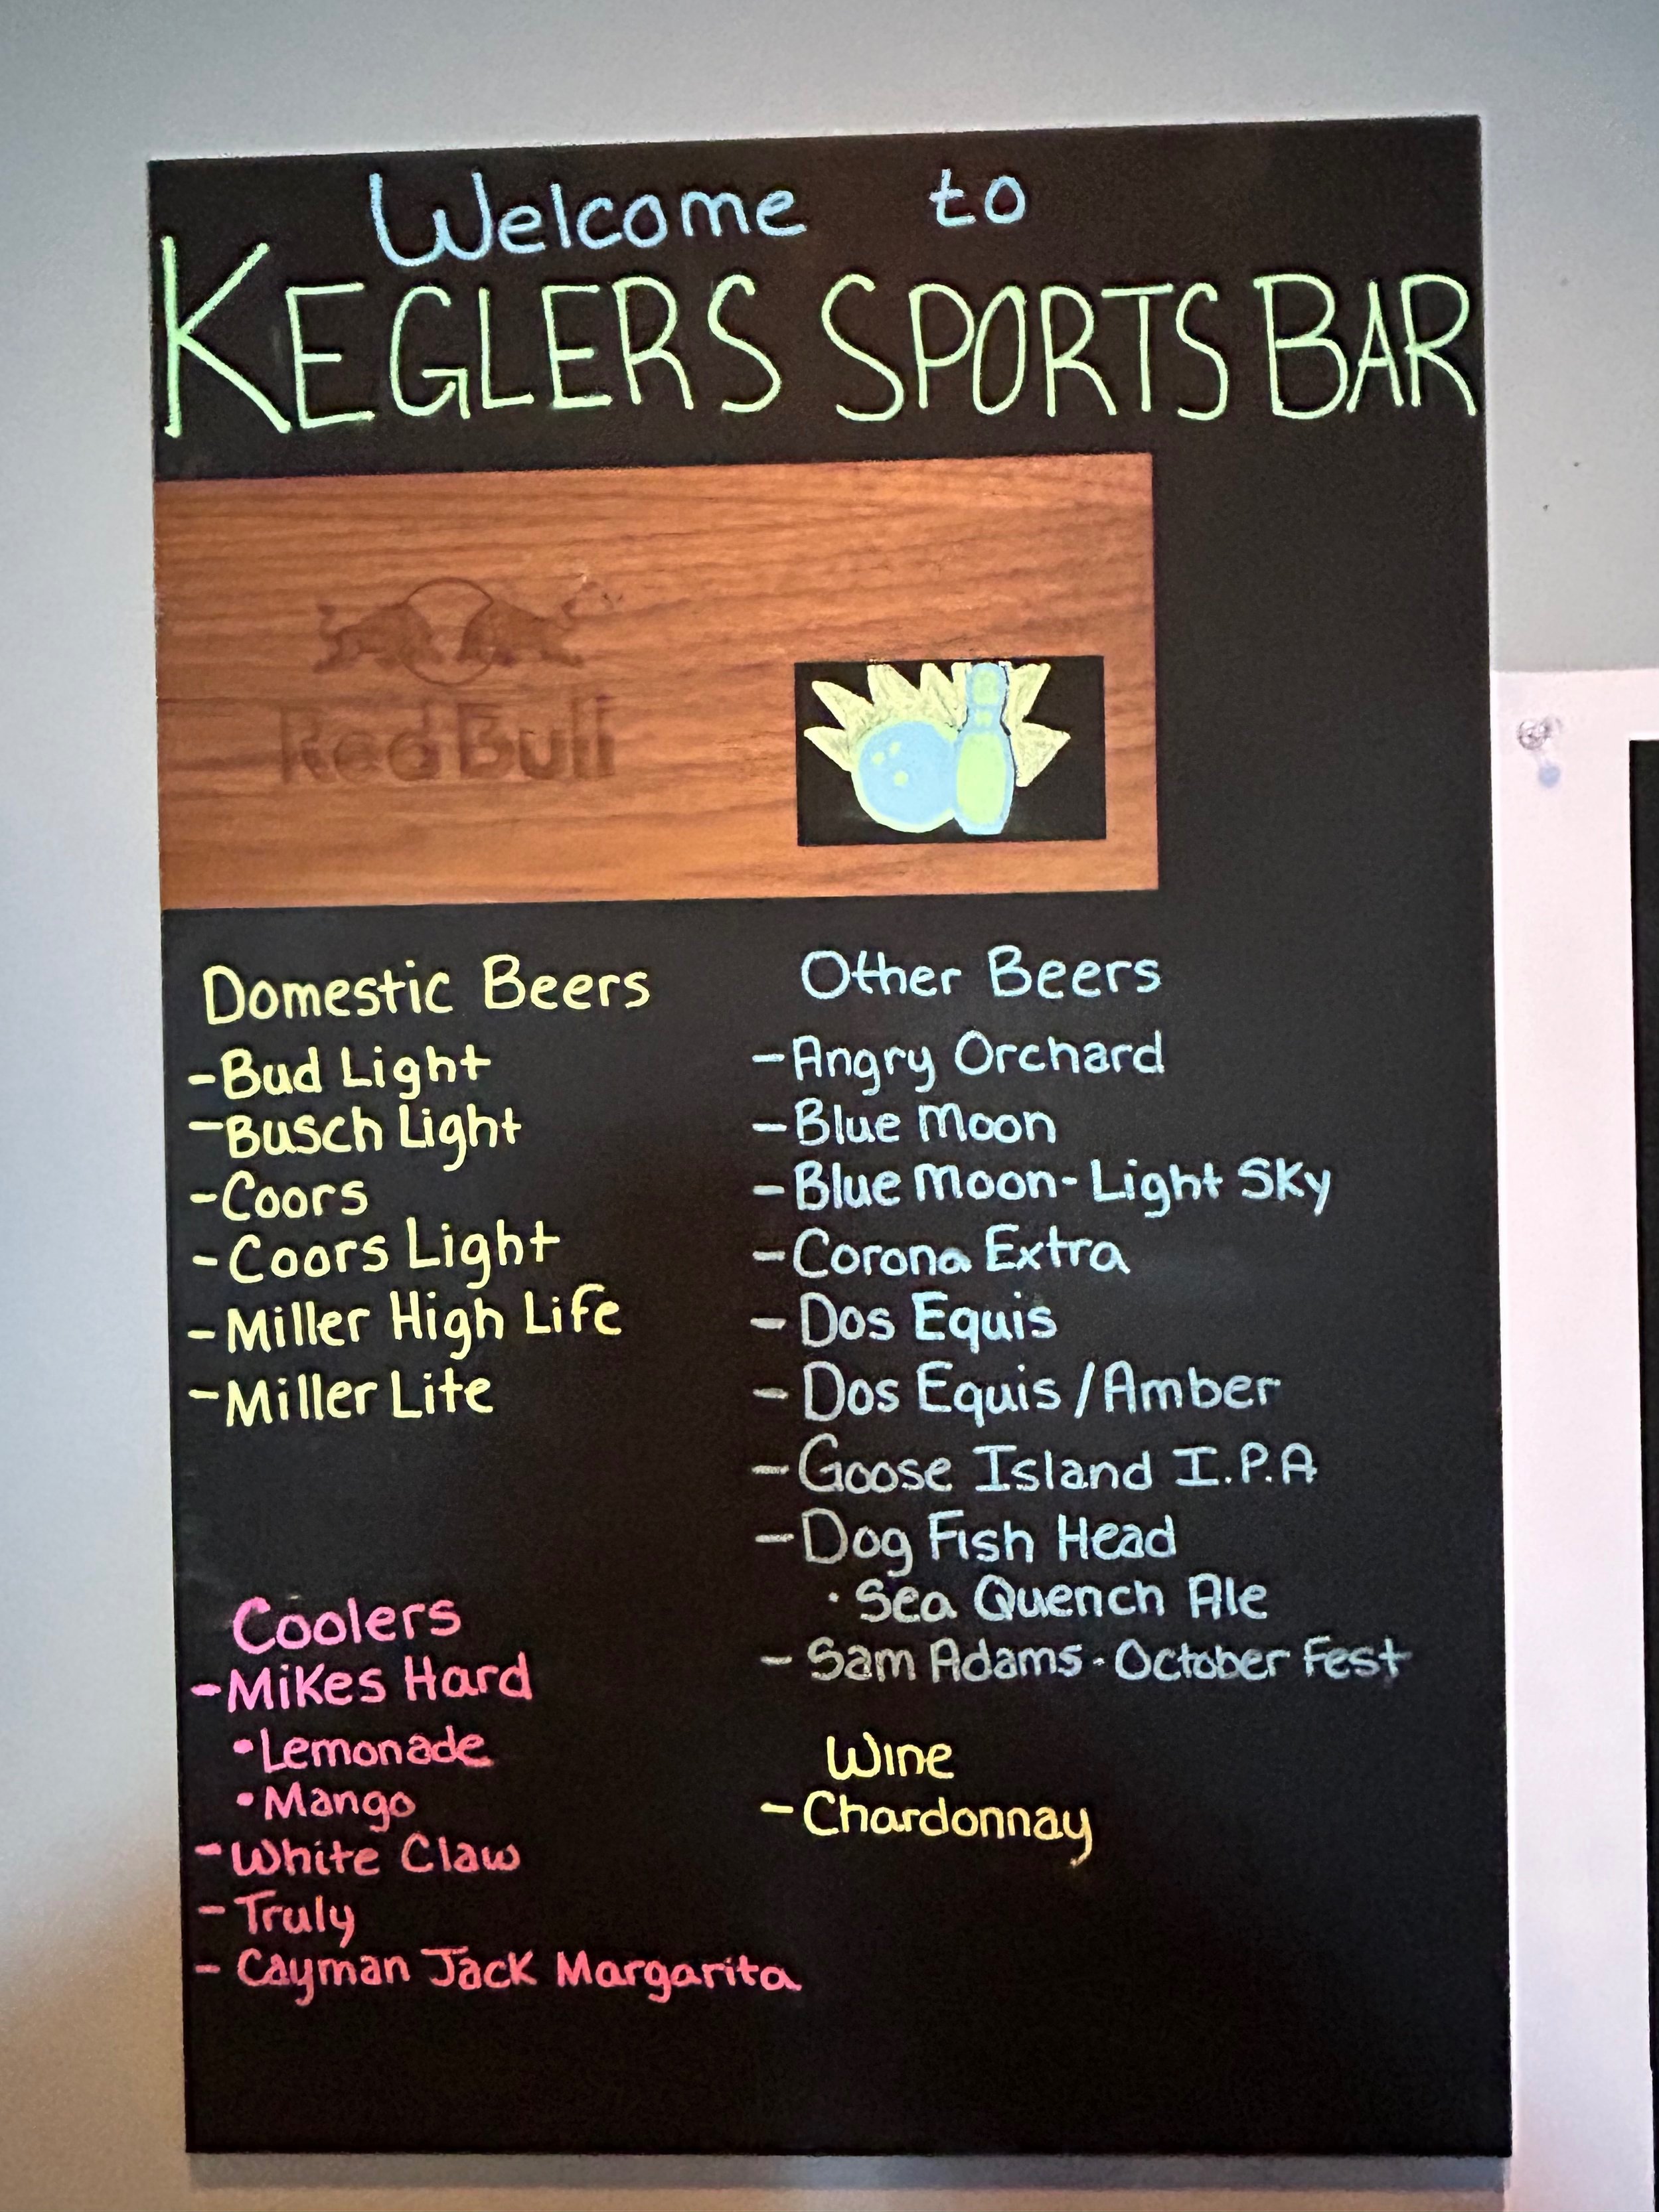 Welcome to
KEGLERS SPORTS BAR
Red Bull
Domestic Beers
-Bud Light
-Busch Light
-Coors
-Coors Light
-Miller High Life
-Miller Lite
Coolers
-Mikes Hard
•Lemonade
•Mango
-White Claw
-Truly
-Cayman Jack Margarita
Other Beers
-Angry Orchard
-Blue Moon
-Blue Moon-Light Sky
-Corona Extra
-Dos Equis
-Dos Equis/Amber
-Goose Island I.P.A
-Dog Fish Head
•Sea Quench Ale
-Sam Adams-October Fest
Wine
-Chardonnay